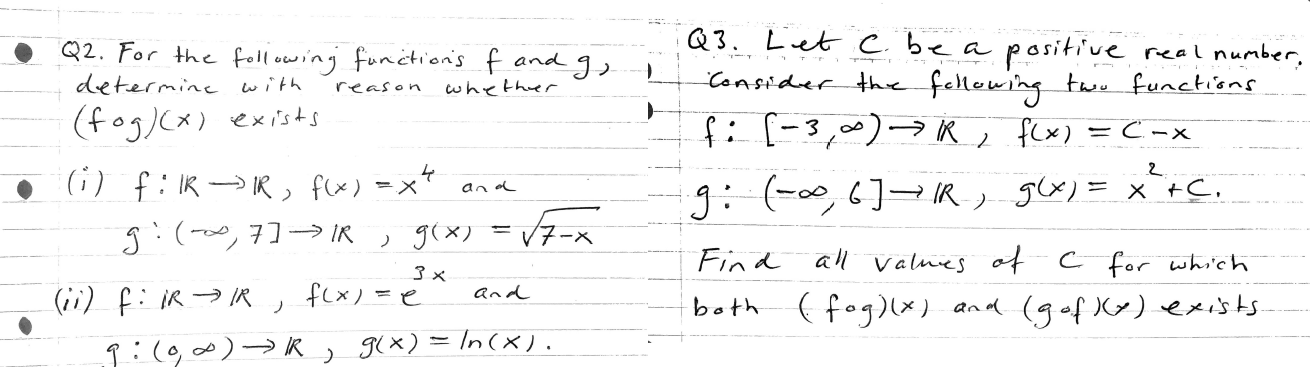 Q2. For the following functions f and g,
determine with reason whether
(fog)(x) exists
(i) f: ℝ → ℝ, f(x) = x⁴ and
g: (-∞, 7] → ℝ, g(x) = √7-x
(ii) f: ℝ → ℝ, f(x) = e³ˣ and
g: (0, ∞) → ℝ, g(x) = ln(x).
Q3. Let C be a positive real number.
Consider the following two functions
f: [-3, ∞) → ℝ, f(x) = C-x
g: (-∞, 6] → ℝ, g(x) = x² + C.
Find all values of C for which
both (fog)(x) and (gof)(x) exists